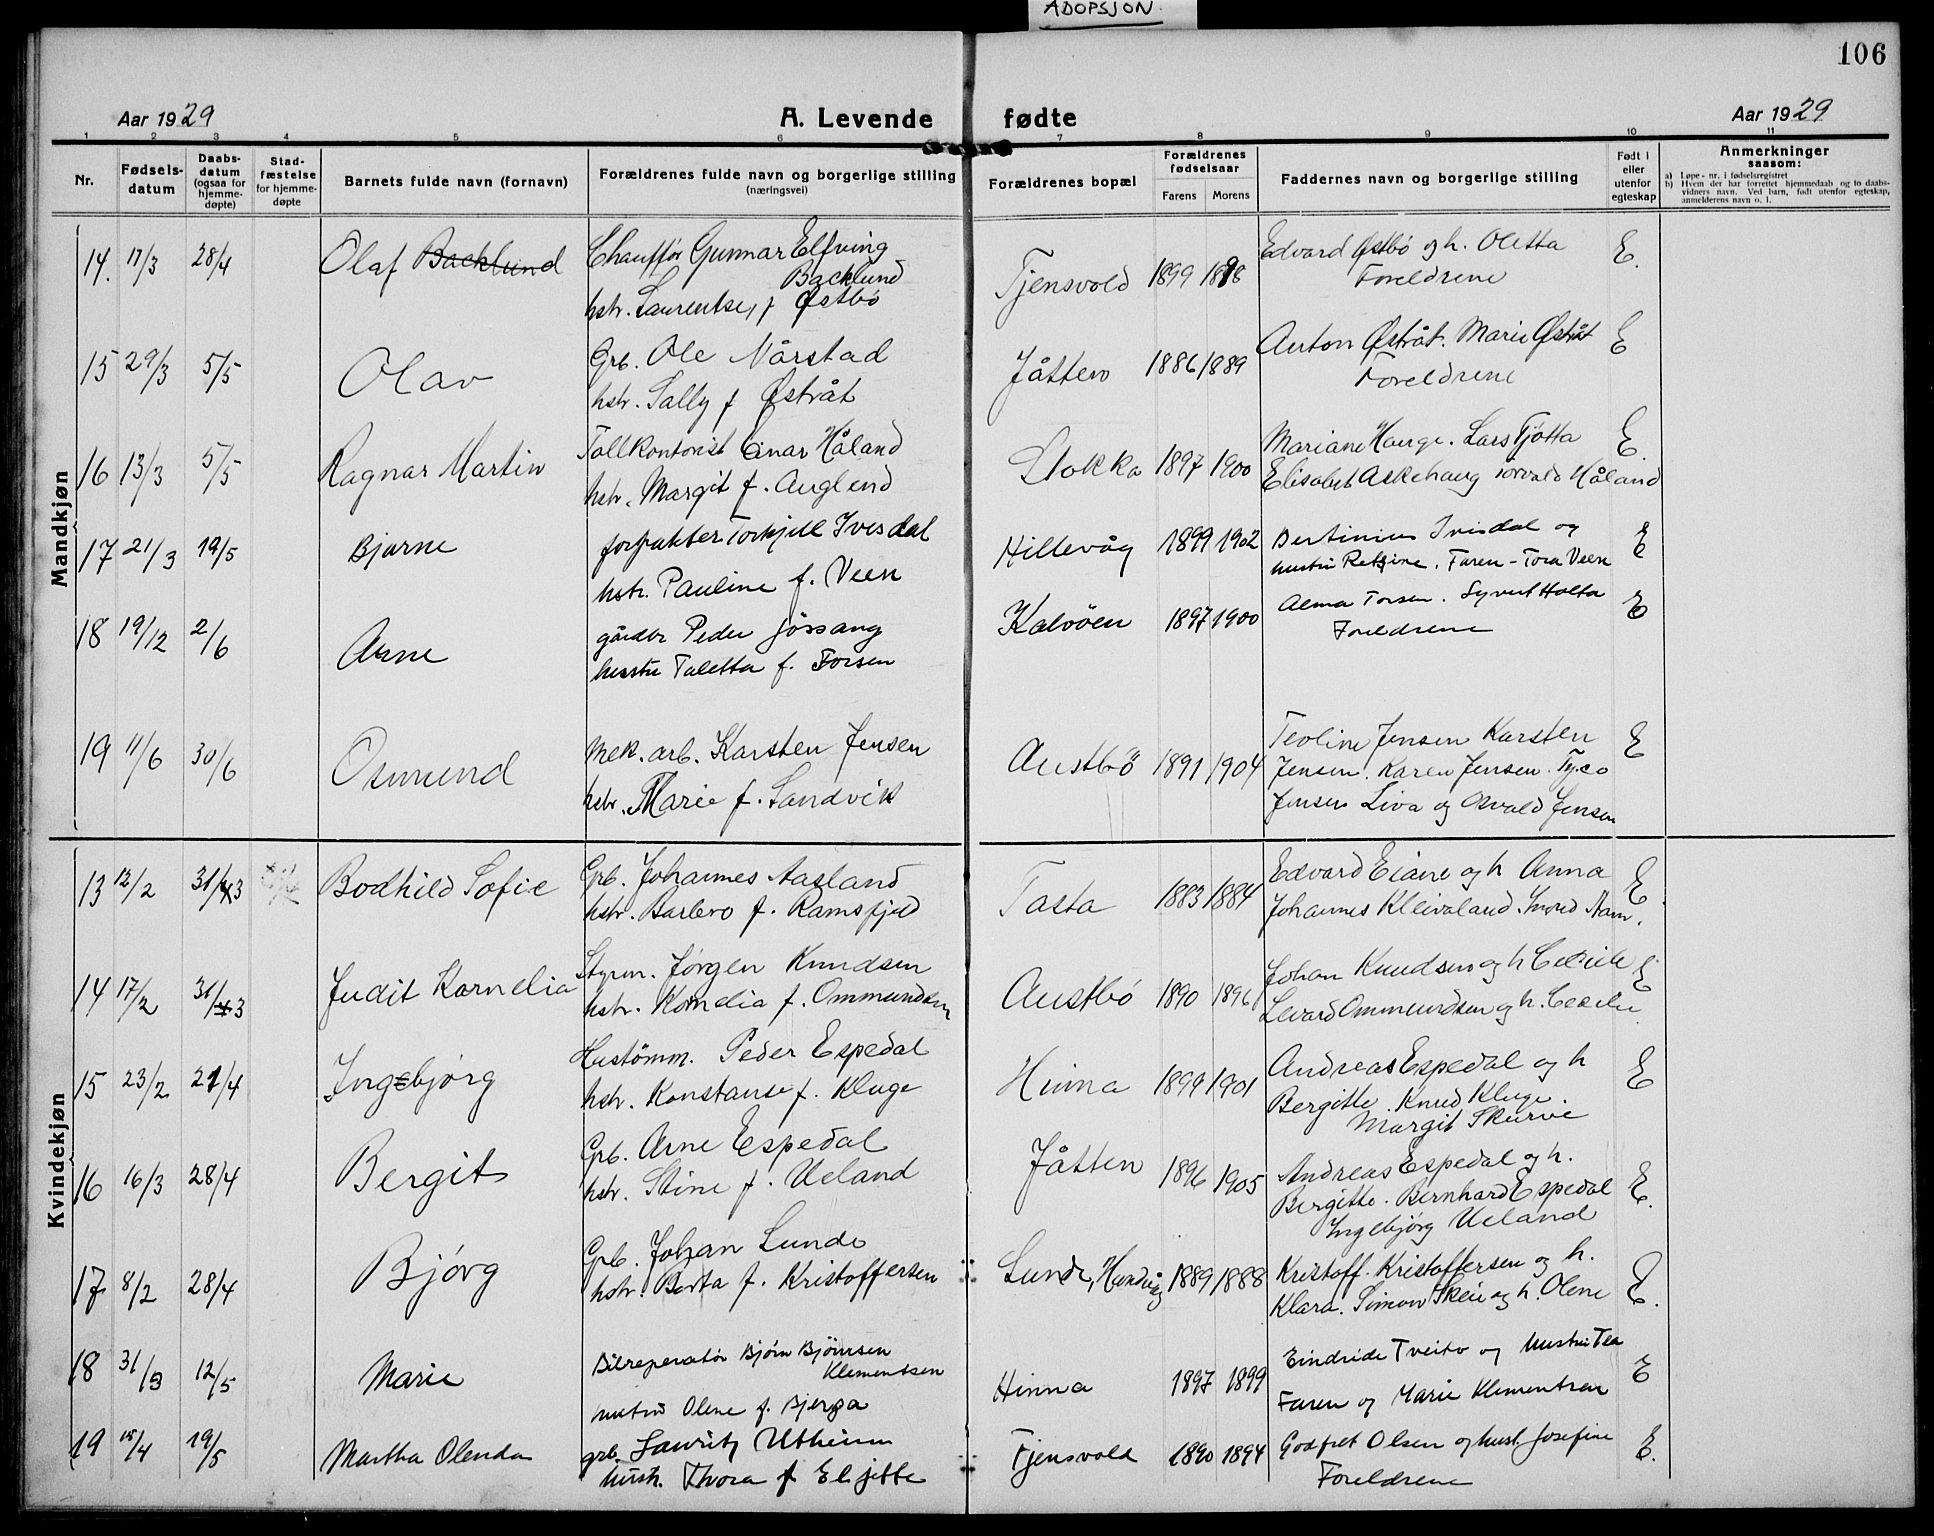 ADOPSJON
106
Aar 1929 A. Levende fødte Aar 1929
1 2 3 4 5 6 7 8 9 10 11
Nr. Fødselsdatum Daabsdatum (ogsaa for hjemmedøpte) Stadfæstelse for hjemmedøpte Barnets fulde navn (fornavn) Forældrenes fulde navn og borgerlige stilling (næringsvei) Forældrenes bopæl Forældrenes fødselsaar Farens Morens Faddernes navn og borgerlige stilling Født i eller utenfor egteskap Anmerkninger saasom:
a) Løpe-nr. i fødselsregistret
b) Hvem der har forrettet hjemmedaab og to daabsvidners navn. Ved barn, født utenfor egteskap, anmelderens navn o. l.
Mandkjøn
14. 17/3 28/4 Olaf Backlund Chauffør Gunnar Elfving Backlund
hstr. Laurentse, f Østbö
Tjensvold 1899 1898 Edvard Østbö og h. Oletta
Foreldrene E.
15 29/3 5/5 Olav Grb. Ole Nårstad
hstr. Sally f Østråt
Jåtten 1886 1889 Anton Østråt. Marie Østråt
Foreldrene E
16 13/3 5/5 Ragnar Martin Tollkontorist Einar Håland
hstr. Margit f. Auglend
Stokka 1897 1900 Mariane Hauge. Lars Tjøtta
Elisabet Askehaug Torvald Håland E.
17 21/3 19/5 Bjarne forpakter Torkjell Ivesdal
hstr. Pauline f. Veen
Hillevåg 1899 1902 Bertinius Ivesdal og
hustru Retzine. Faren - Tora Veen E
18 19/12 2/6 Arne gårdbr Peder Jössang
hustru Taletta f. Torsen
Kalvöen 1897 1900 Alma Torsen. Syvert Holta
Foreldrene E
19 11/6 30/6 Osmund Mek. arb. Karsten Jensen
hstr. Marie f. Sandvik
Austbö 1891 1904 Teoline Jensen Karsten
Jensen. Karen Jensen. Tyco
Jensen Liva og Osvald Jensen E
Kvindekjøn
13 12/2 31/3 Bodhild Sofie Grb. Johannes Aasland
hstr. Barbro f. Ramsfjeld
Tasta 1883 1884 Edvard Eiane og h Anna
Johannes Kleivaland. E
14 17/2 31/3 Judit Kornelia Styrm. Jörgen Knudsen
hstr. Kornelia f. Ommundsen
Austbö 1890 1896 Johan Knudsen og h Cecilie
Sevard Ommundsen og h. Cecilie E
15 23/2 21/4 Ingebjørg Hustömm. Peder Espedal
hstr. Konstanse f. Kluge
Hinna 1899 1901 Andreas Espedal og h
Bergitte. Knud Kluge.
Margit Skurve E
16 16/3 28/4 Bergit Grb. Arne Espedal
hstr. Stine f. Ueland
Jåtten 1896 1905 Andreas Espedal og h.
Bergitte. Bernhard Espedal
Ingebjørg Ueland E.
17 8/2 28/4 Bjórg Grb. Johan Lunde
hstr. Berta f. Kristoffersen
Lunde, Hundvåg 1889 1888 Kristoff. Kristoffersen og h.
Klara. Simon Skeie og h. Olene E.
18 31/3 12/5 Marie Bilreperatör Bjørn Bjørnsen Klementsen
hustru Olene f. Bjerga
Hinna 1897 1899 Eindride Tveito og hustru Tea
Faren og Marie Klementsen E
19 15/4 19/5 Martha Olenda grb. Lauritz Utheim
hustr. Thora f Eljette
Tjensvold 1890 1894 Godfret Olsen og hust. Josefine
Foreldrene E.